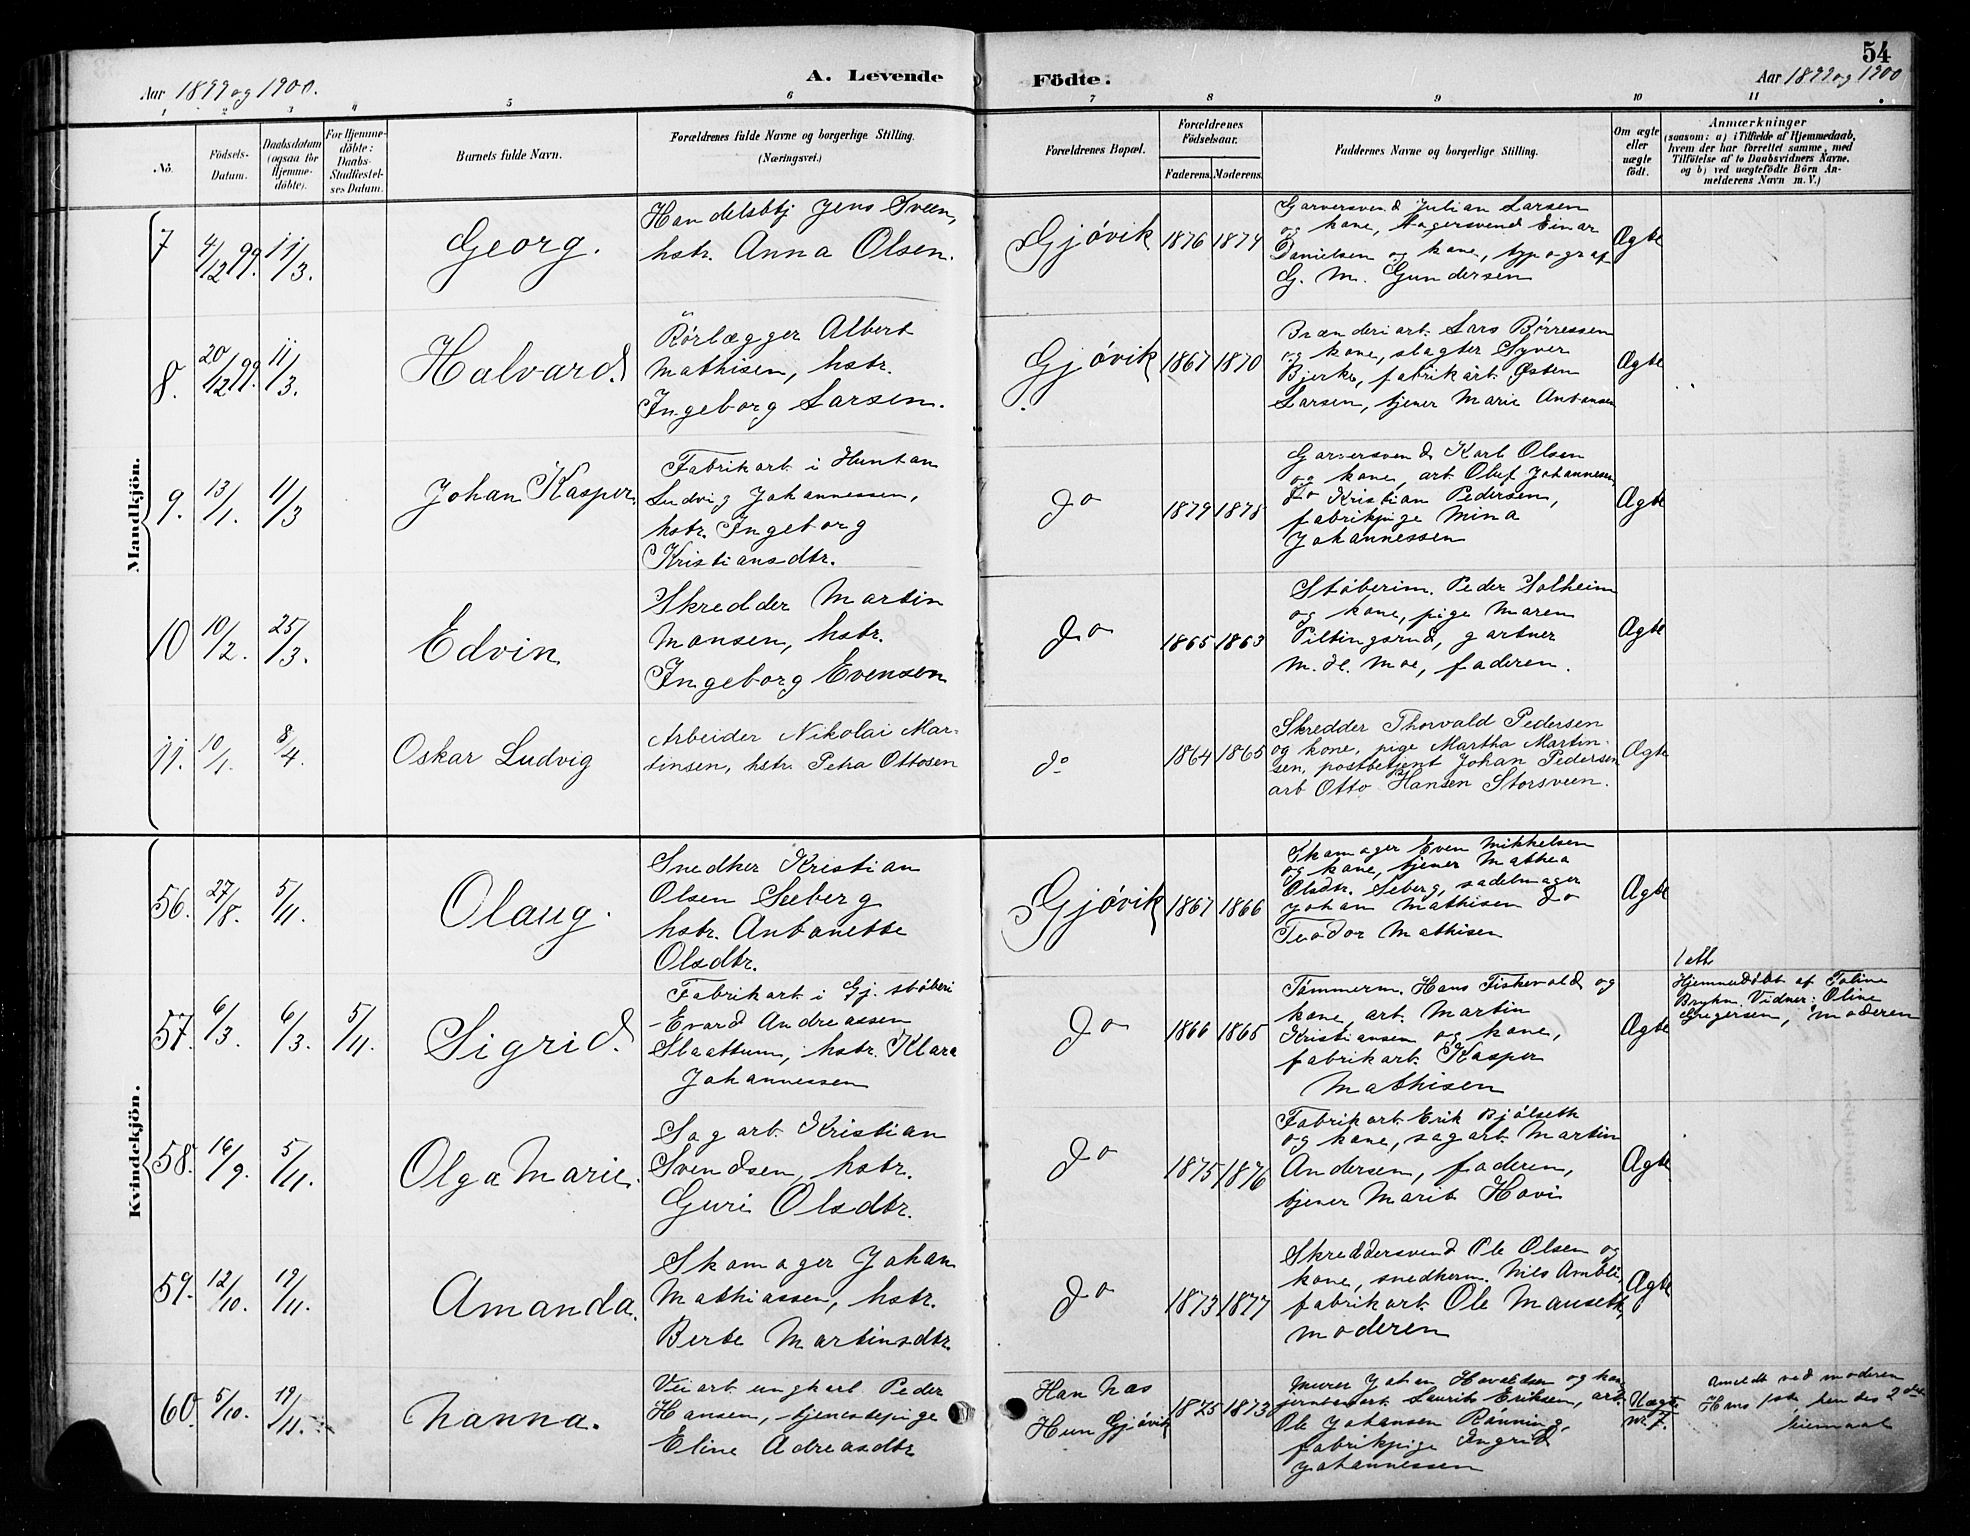 54
Aar 1899 og 1900.
A. Levende Födte.
Aar 1899 og 1900
1 2 3 4 5 6 7 8 9 10 11
No.
Födsels-Datum.
Daabsdatum (ogsaa för Hjemmedöbte).
For Hjemmedöbte: Daabs-Stadfæstelses Datum.
Barnets fulde Navn.
Forældrenes fulde Navne og borgerlige Stilling. (Næringsvei.)
Forældrenes Bopæl.
Forældrenes Födselsaar.
Faderens. Moderens.
Faddernes Navne og borgerlige Stilling.
Om ægte eller uægte födt.
Anmærkninger
(saasom: a) i Tilfælde af Hjemmedaab,
hvem der har forrettet samme, med
Tilföielse af to Daabsvidners Navne.
og b) ved uægtefödte Börn An-
melderens Navn m. V.)
Mandkjön.
7 4/12 99. 11/3. Georg.
Handelsbtj Jens Sveen,
hstr. Anna Olsen.
Gjøvik 1876 1874
Garversvend Julian Larsen
og kone, bagersvend Einar
Danielsen og kone, typograf
G. M. Gundersen
Ægte
8. 20/12 99. 11/3. Halvard.
Rörlægger Albert
Mathisen, hstr.
Ingeborg Larsen.
Gjøvik 1867 1870
Brænderiarb. Lars Børressen
og kone, slagter Syver
Bjerke, fabrikarb. Østen
Larsen, tjener Marie Antonsen
Ægte
9. 13/1. 11/3 Johan Kasper.
Fabrikarb. i Hunton
Ludvig Johannessen,
hstr. Ingeborg
Kristiansdtr.
Do 1879 1878
Garversvend Karl Olsen
og kone, arb. Oluf Johannessen
Do Kristian Pedersen,
fabrikpige Mina
Johannessen
Ægte
10 10/2. 25/3. Edvin
Skredder Martin
Monsen, hstr.
Ingeborg Evensen
Do 1865 1863
Støberim. Peder Solheim
og kone, pige Maren
Piltingsrud, gartner
M. H. Moe, faderen.
Ægte
11. 10/1. 8/4. Oskar Ludvig
Arbeider Nikolai Mar-
tinsen, hstr. Petra Ottosen
do. 1864 1865
Skredder Thorvald Pedersen
og kone, pige Martha Martin-
sen, postbetjent Johan Pedersen
arb Otto Hansen Storsveen.
Ægte
Kvindekjön.
56. 27/8. 5/11. Olaug.
Snedker Kristian
Olsen Seeberg
hstr. Antonette
Olsdtr.
Gjøvik 1867 1866
Skomager Even Mikkelsen
og kone, tjener Mathea
Olsdtr. Seberg, sadelmager
Johan Mathisen Do
Teodor Mathisen
Ægte
57. 6/3. 6/3. 5/11. Sigrid.
Fabrikarb. i Gj. støberi
Evard Andreassen
Slaattum, hstr. Klara
Johannessen
Do 1866 1865
Tömmerm. Hans Fiskevold og
kone, arb. Martin
Kristiansen og kone,
fabrikarb. Kasper
Mathisen
Ægte
Hjemmedøbt af Toline
Vidner: Oline
Gregersen, moderen
58. 16/9. 5/11. Olga Marie.
Sagarb. Kristian
Svendsen, hstr.
Guri Olsdtr.
Do 1875 1876
Fabrikarb. Erik Bjølseth
og kone, sagarb. Martin
Andersen, faderen,
tjener Marit Hovi
Ægte
59. 12/10. 19/11. Amanda.
Skomager Johan
Mathiassen, hstr.
Berte Martinsdtr.
Do 1873 1877
Skreddersvend Ole Olsen og
kone, snedkerm. Nils Ambli,
fabrikarb. Ole Mauseth,
moderen
Ægte
60. 5/10. 19/11. Nanna.
Veiarb. ungkarl Peder
Hansen, tjenestepige
Eline Adreasdtr
Han Næs
Hun Gjøvik
1875 1873
Murer Johan Hovaldsen og kone
Laurits Eriksen, arb.
Ole Johansen Rønning,
fabrikpige Ingrid
Johannessen
Uægte
Anmeldt ved moderen
Hans 1ste, hendes 2det
leiermaal